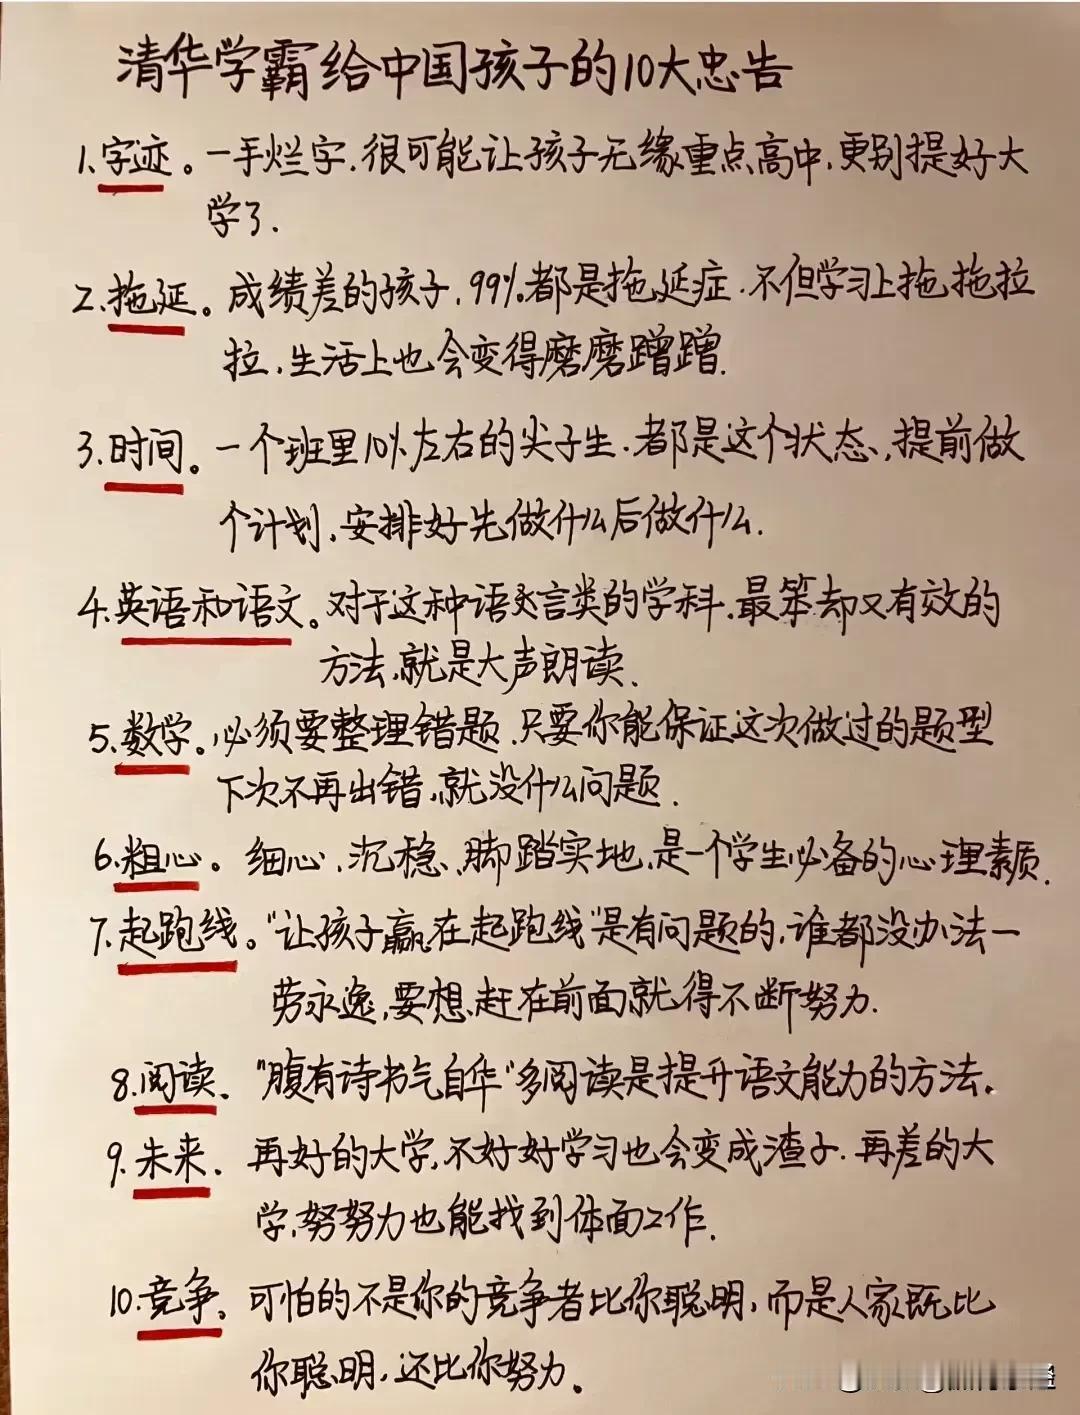 清华学霸给中国孩子的10大忠告
1.字迹。一手烂字.很可能让孩子无缘重点高中,更别提好大
学了.
2.拖延。成绩差的孩子,99%都是拖延症.不但学习上拖拖拉
拉,生活上也会变得磨磨蹭蹭.
3.时间。一个班里10%左右的尖子生.都是这个状态,提前做
个计划,安排好先做什么后做什么.
4.英语和语文。对于这种语言类的学科.最笨却又有效的
方法,就是大声朗读.
5.数学。必须要整理错题.只要你能保证这次做过的题型
下次不再出错,就没什么问题.
6.粗心。细心,沉稳,脚踏实地,是一个学生必备的心理素质.
7.起跑线。"让孩子赢在起跑线"是有问题的,谁都没办法一
劳永逸,要想赶在前面就得不断努力.
8.阅读.“腹有诗书气自华“多阅读是提升语文能力的方法.
9.未来.再好的大学,不好好学习也会变成渣子.再差的大
学,努努力也能找到体面工作.
10.竞争.可怕的不是你的竞争者比你聪明,而是人家既比
你聪明,还比你努力。